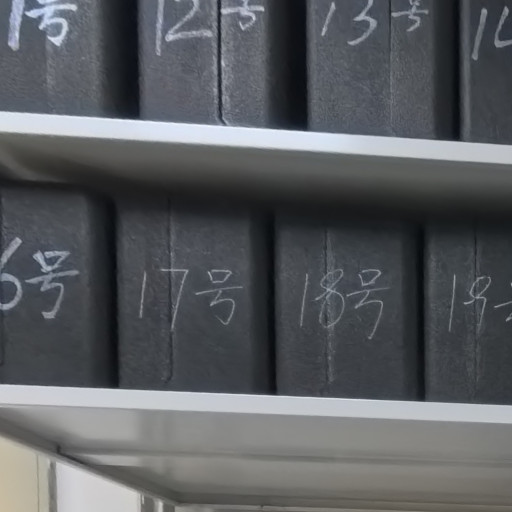 1号 12号 13号 14
6号 17号 18号 19号